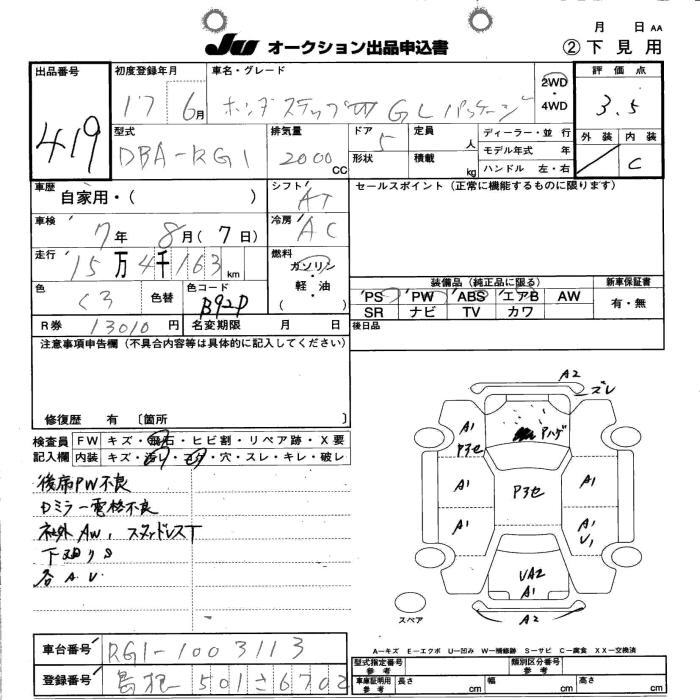 JU オークション出品申込書
月 日 AA
② 下見用
出品番号 419
初度登録年月 17 6月
車名・グレード ホンダ ステップW GLパッケージ
2WD
・
4WD
評価点 3.5
外装 内装 C
型式 DBA-RG1
排気量 2000 CC
ドア 5
形状
定員 人
積載 kg
ディーラー・並行
モデル年式 年
ハンドル 左・右
車歴 自家用・( )
シフト AT
セールスポイント(正常に機能するものに限ります)
車検 7年 8月(7日)
冷房 AC
走行 15万4千163 km
燃料 ガソリン・軽油 ( )
色 クロ 色替 色コード B92P
装備品(純正品に限る)
新車保証書
PS PW ABS エアB AW
有・無
SR ナビ TV カワ
R券 13010円 名変期限 月 日
後日品
注意事項申告欄(不具合内容等は具体的に記入してください)
修復歴 有 [箇所 ]
検査員 記入欄
FW キズ・飛石・ヒビ割・リペア跡・X要
内装 キズ・汚レ・コゲ・穴・スレ・キレ・破レ
後席PW不良
Dミラー電格不良
社外AW、スタッドレスT
下廻りS
各A.U.
A2
ズレ
A1
Pハゲ
A1
A1
A1
A1
A1
U1
UA2
A1
スペア
A2
A−キズ E−エクボ U−凹み W−補修跡 S−サビ C−腐食 XX−交換済
車台番号 RG1-1003113
型式指定番号 参考
類別区分番号 参考
登録番号 島根 501 さ 6702
車庫証明用 参考 長さ cm 幅 cm 高さ cm